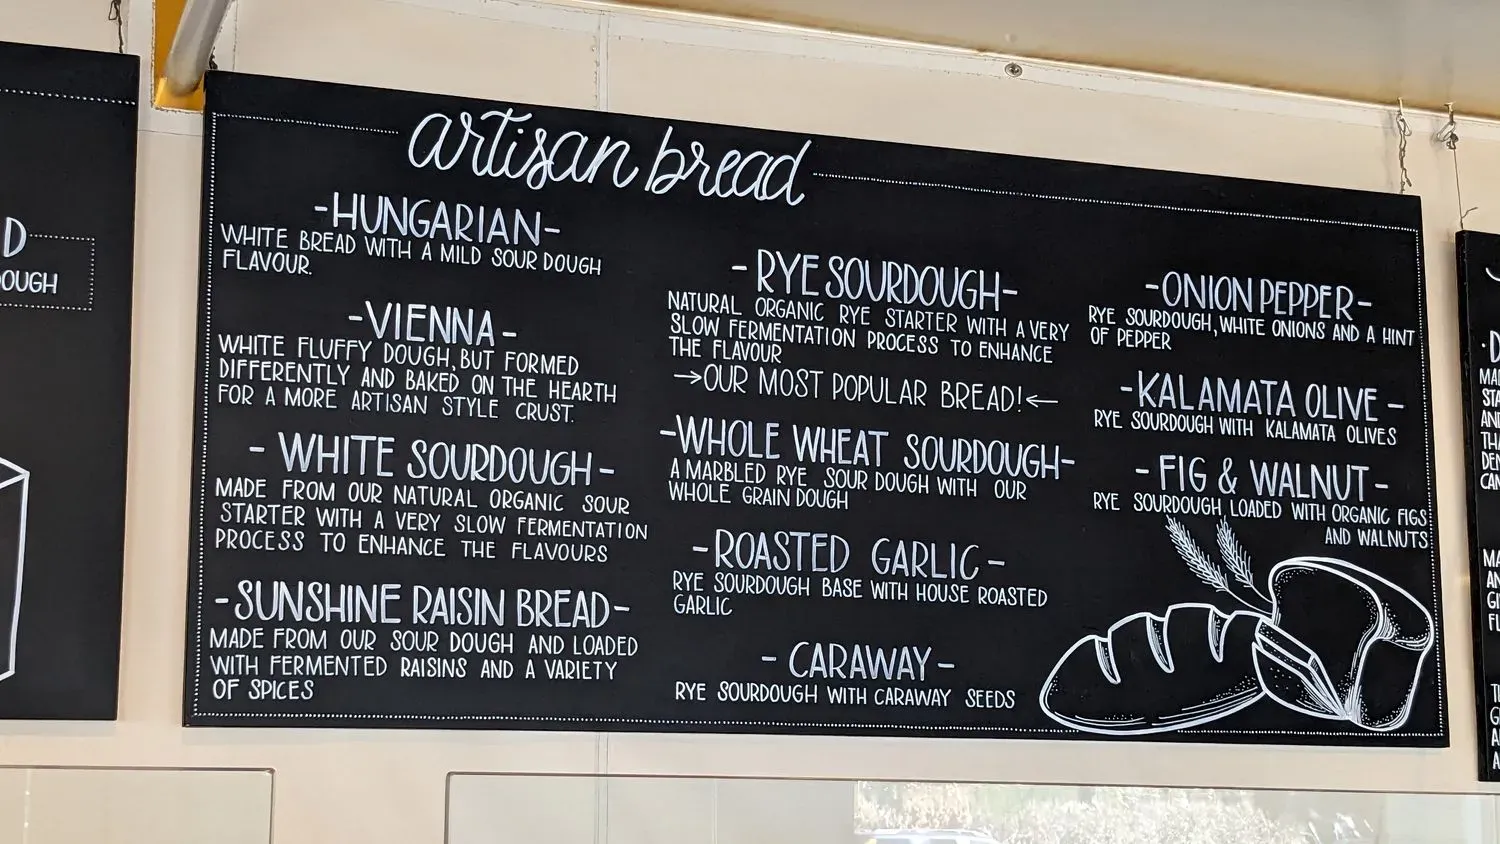 D
OUGH
artisan bread
-HUNGARIAN-
WHITE BREAD WITH A MILD SOUR DOUGH
FLAVOUR.
-VIENNA-
WHITE FLUFFY DOUGH, BUT FORMED
DIFFERENTLY AND BAKED ON THE HEARTH
FOR A MORE ARTISAN STYLE CRUST.
- WHITE SOURDOUGH -
MADE FROM OUR NATURAL ORGANIC SOUR
STARTER WITH A VERY SLOW FERMENTATION
PROCESS TO ENHANCE THE FLAVOURS
-SUNSHINE RAISIN BREAD-
MADE FROM OUR SOUR DOUGH AND LOADED
WITH FERMENTED RAISINS AND A VARIETY
OF SPICES
- RYE SOURDOUGH-
NATURAL ORGANIC RYE STARTER WITH A VERY
SLOW FERMENTATION PROCESS TO ENHANCE
THE FLAVOUR
→OUR MOST POPULAR BREAD!←
-WHOLE WHEAT SOURDOUGH-
A MARBLED RYE SOUR DOUGH WITH OUR
WHOLE GRAIN DOUGH
-ROASTED GARLIC-
RYE SOURDOUGH BASE WITH HOUSE ROASTED
GARLIC
- CARAWAY-
RYE SOURDOUGH WITH CARAWAY SEEDS
-ONION PEPPER-
RYE SOURDOUGH, WHITE ONIONS AND A HINT
OF PEPPER
-KALAMATA OLIVE -
RYE SOURDOUGH WITH KALAMATA OLIVES
- FIG & WALNUT-
RYE SOURDOUGH, LOADED WITH ORGANIC FIGS
AND WALNUTS